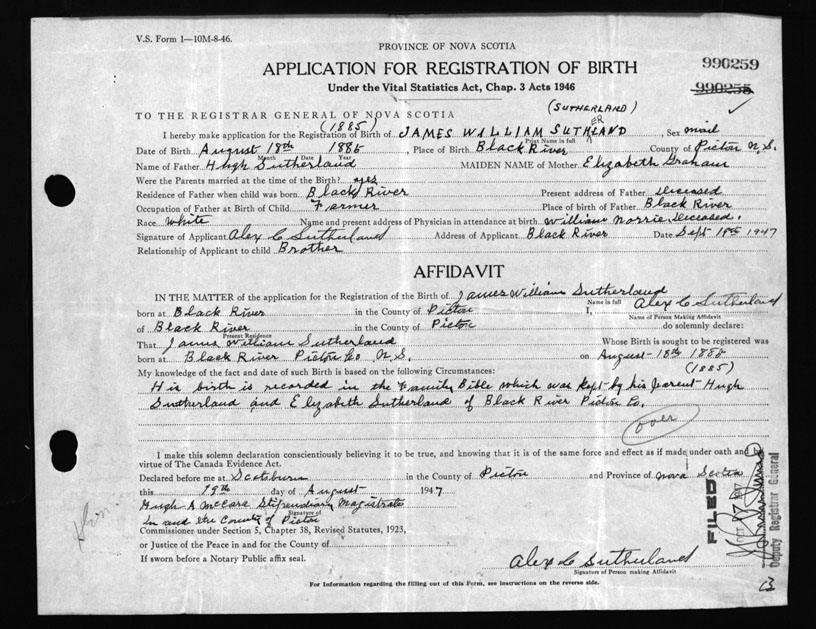 V.S. Form 1—10M-8-46.
PROVINCE OF NOVA SCOTIA
990259
APPLICATION FOR REGISTRATION OF BIRTH
990255
Under the Vital Statistics Act, Chap. 3 Acts 1946
(SUTHERLAND)
TO THE REGISTRAR GENERAL OF NOVA SCOTIA
(1885) ER
I hereby make application for the Registration of Birth of JAMES WILLIAM SUTHLAND, Sex mail
Print Name in full
Date of Birth August 18th 1886, Place of Birth Black River County of Pictou N.S.
Month Date Year
Name of Father Hugh Sutherland MAIDEN NAME of Mother Elizabeth Graham
Were the Parents married at the time of the Birth? yes
Residence of Father when child was born Black River Present address of Father Deceased
Occupation of Father at Birth of Child Farmer Place of birth of Father Black River
Race White Name and present address of Physician in attendance at birth William Norrie, Deceased.
Signature of Applicant Alex C Sutherland Address of Applicant Black River Date Sept 18th 1947
Relationship of Applicant to child Brother
AFFIDAVIT
IN THE MATTER of the application for the Registration of the Birth of James William Sutherland
Name in full
born at Black River in the County of Pictou I, Alex C Sutherland
Name of Person Making Affidavit
of Black River in the County of Pictou do solemnly declare:
Present Residence
That James William Sutherland Whose Birth is sought to be registered was
born at Black River Pictou Co N.S. on August 18th 1886
(1885)
My knowledge of the fact and date of such Birth is based on the following Circumstances:
His birth is recorded in the Family Bible which was kept by his parent Hugh
Sutherland and Elizabeth Sutherland of Black River Pictou Co.
over
I make this solemn declaration conscientiously believing it to be true, and knowing that it is of the same force and effect as if made under oath and by
virtue of The Canada Evidence Act.
Declared before me at Scotsburn in the County of Pictou and Province of Nova Scotia
this 19th day of August 1947
Hugh McCara Stipendiary Magistrate
Signature of
in and the County of Pictou
Commissioner under Section 5, Chapter 38, Revised Statutes, 1923,
or Justice of the Peace in and for the County of
If sworn before a Notary Public affix seal.
Alex C Sutherland
Signature of Person making Affidavit
For Information regarding the filling out of this Form, see instructions on the reverse side.
FILED
Deputy Registrar General